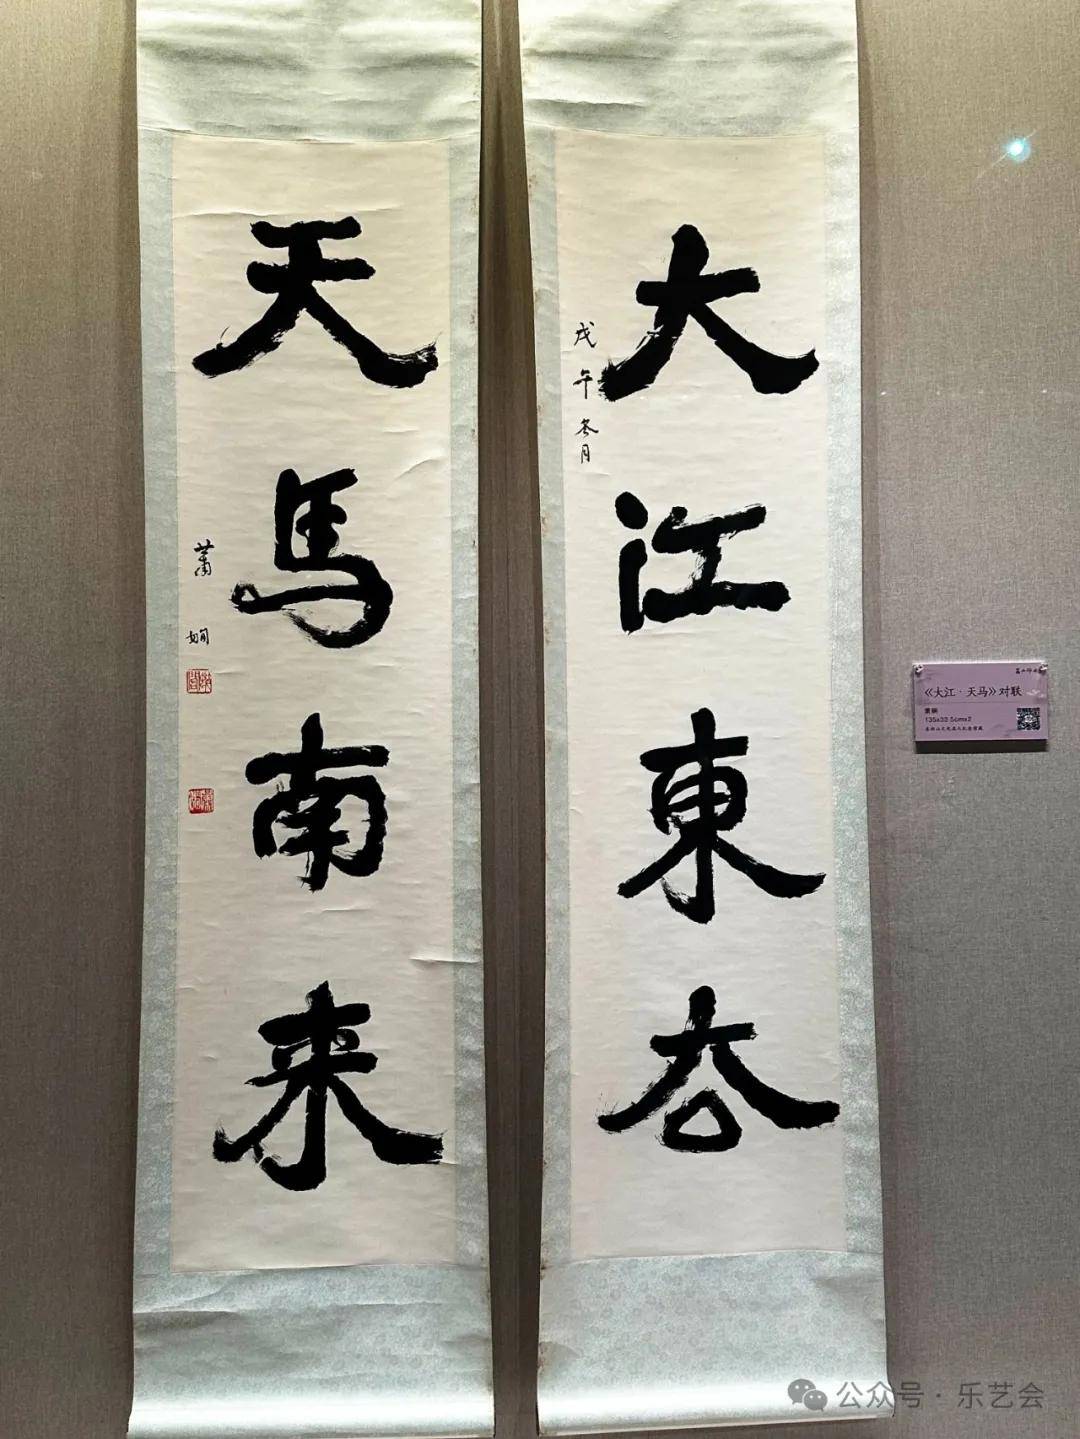 大江東去
戊午冬月
天馬南来
蕭嫻
《大江·天马》对联
萧娴
135x33.5cmx2
公众号·乐艺会